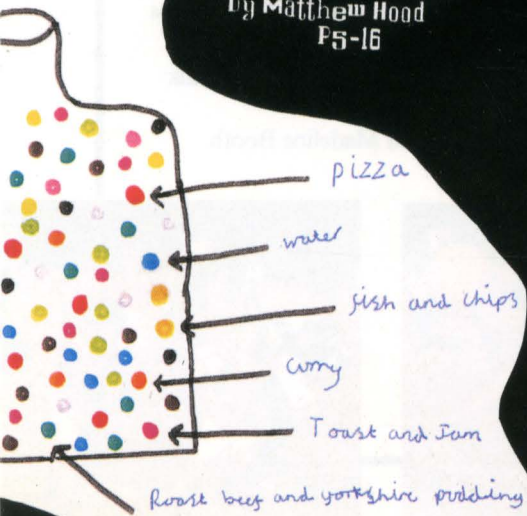 by Matthew Hood
P5-16
pizza
water
fish and chips
curry
Toast and Jam
Roast beef and yorkshire pudding